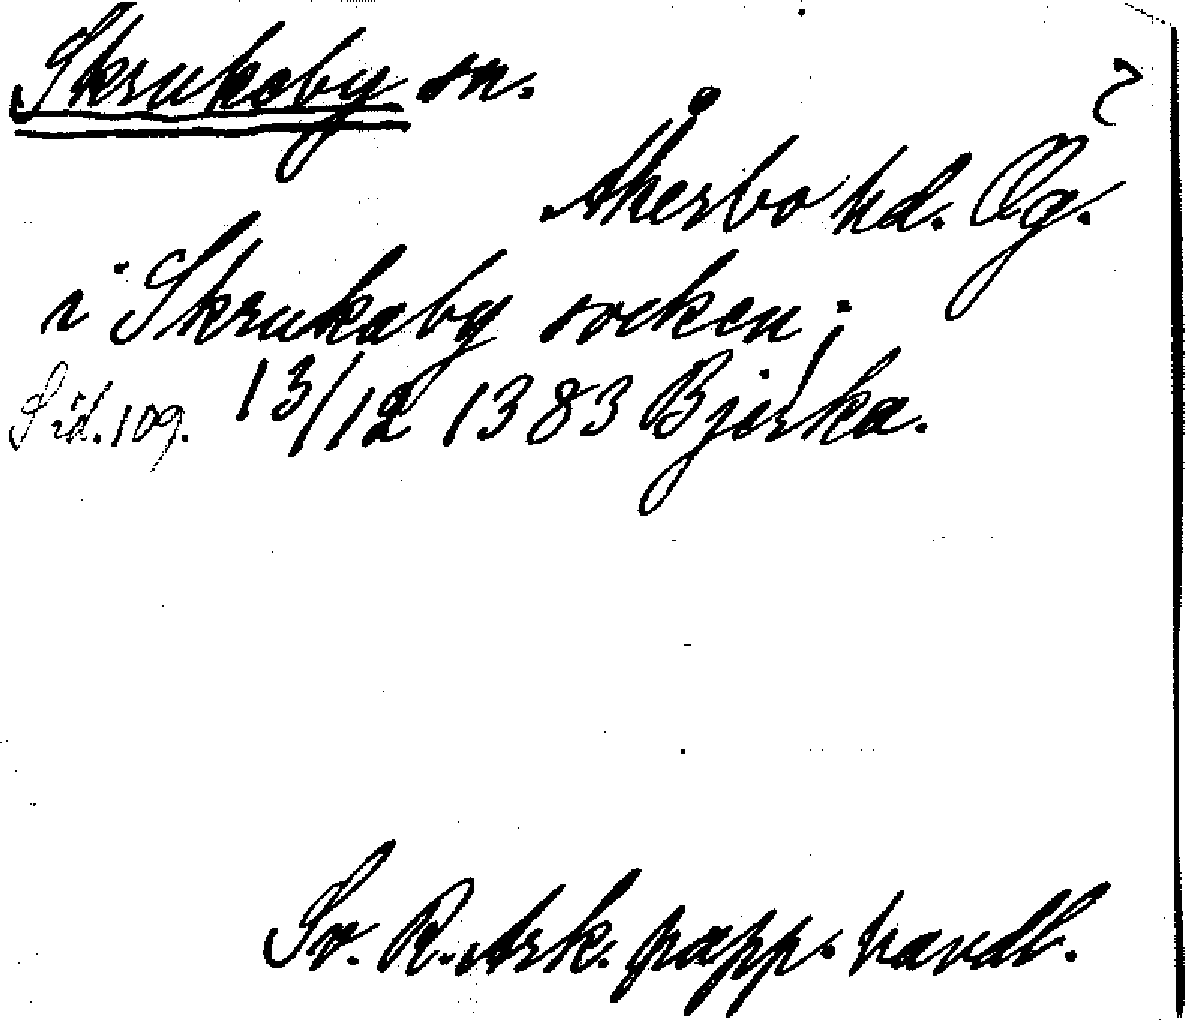 Skrukeby sn.
?
Åkerbo hd. Ög.
i Skrukaby socken;
Sid. 109. 13/12 1383 Bjärka.
Sv. R. Ark. papp. handl.